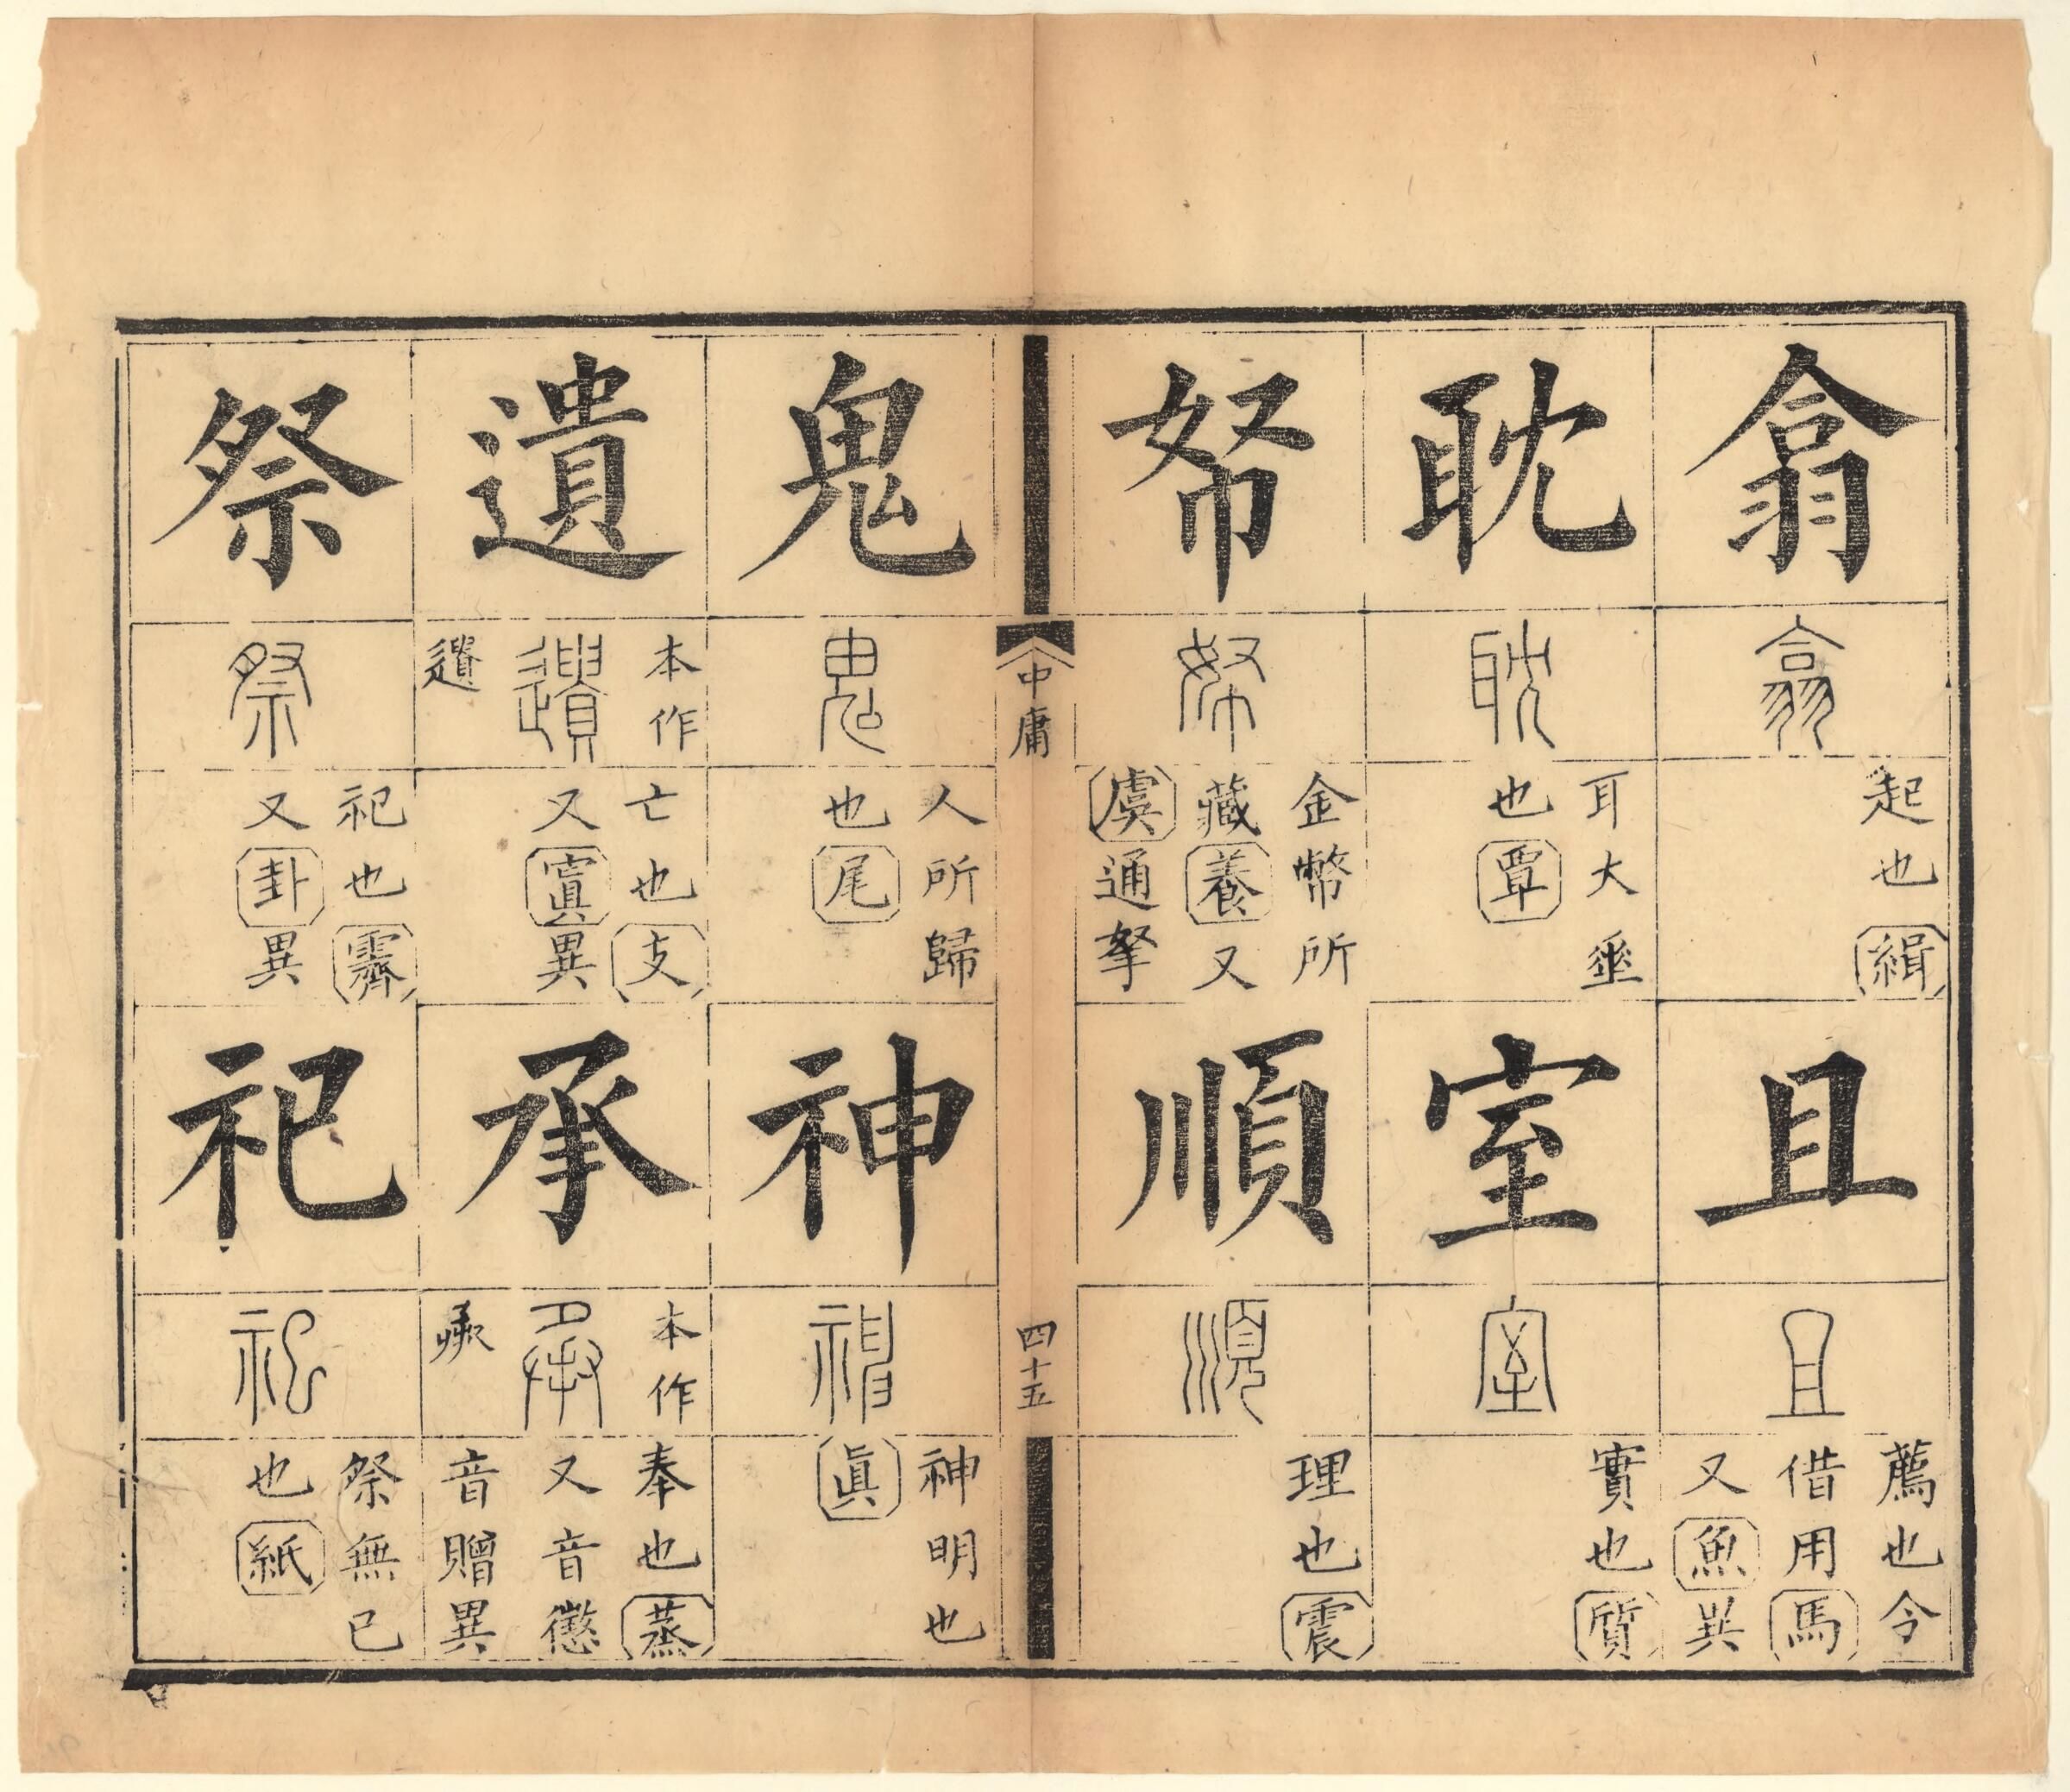 翕
翕
起也緝
且
且
薦也令
借用馬
又魚異
耽
耽
耳大垂
也覃
室
室
實也質
帑
帑
金幣所
藏養又
虞通孥
順
順
理也震
中庸
四十五
鬼
鬼
人所歸
也尾
神
神
神明也
眞
遺
本作
遺
遺
亡也支
又寘異
承
本作
承
奉也蒸
又音懲
音贈異
祭
祭
祀也霽
又卦異
祀
祀
祭無已
也紙